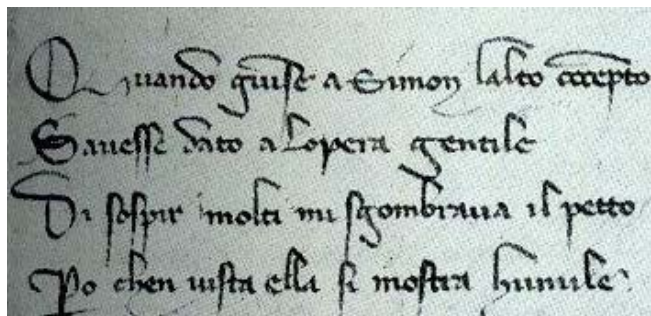 Quando giūse a Simon lalto cōcepto
Sauesse dato a lopera gentile
Di sospir molti mi sgombraua il petto
Po chen uista ella si mostra humile